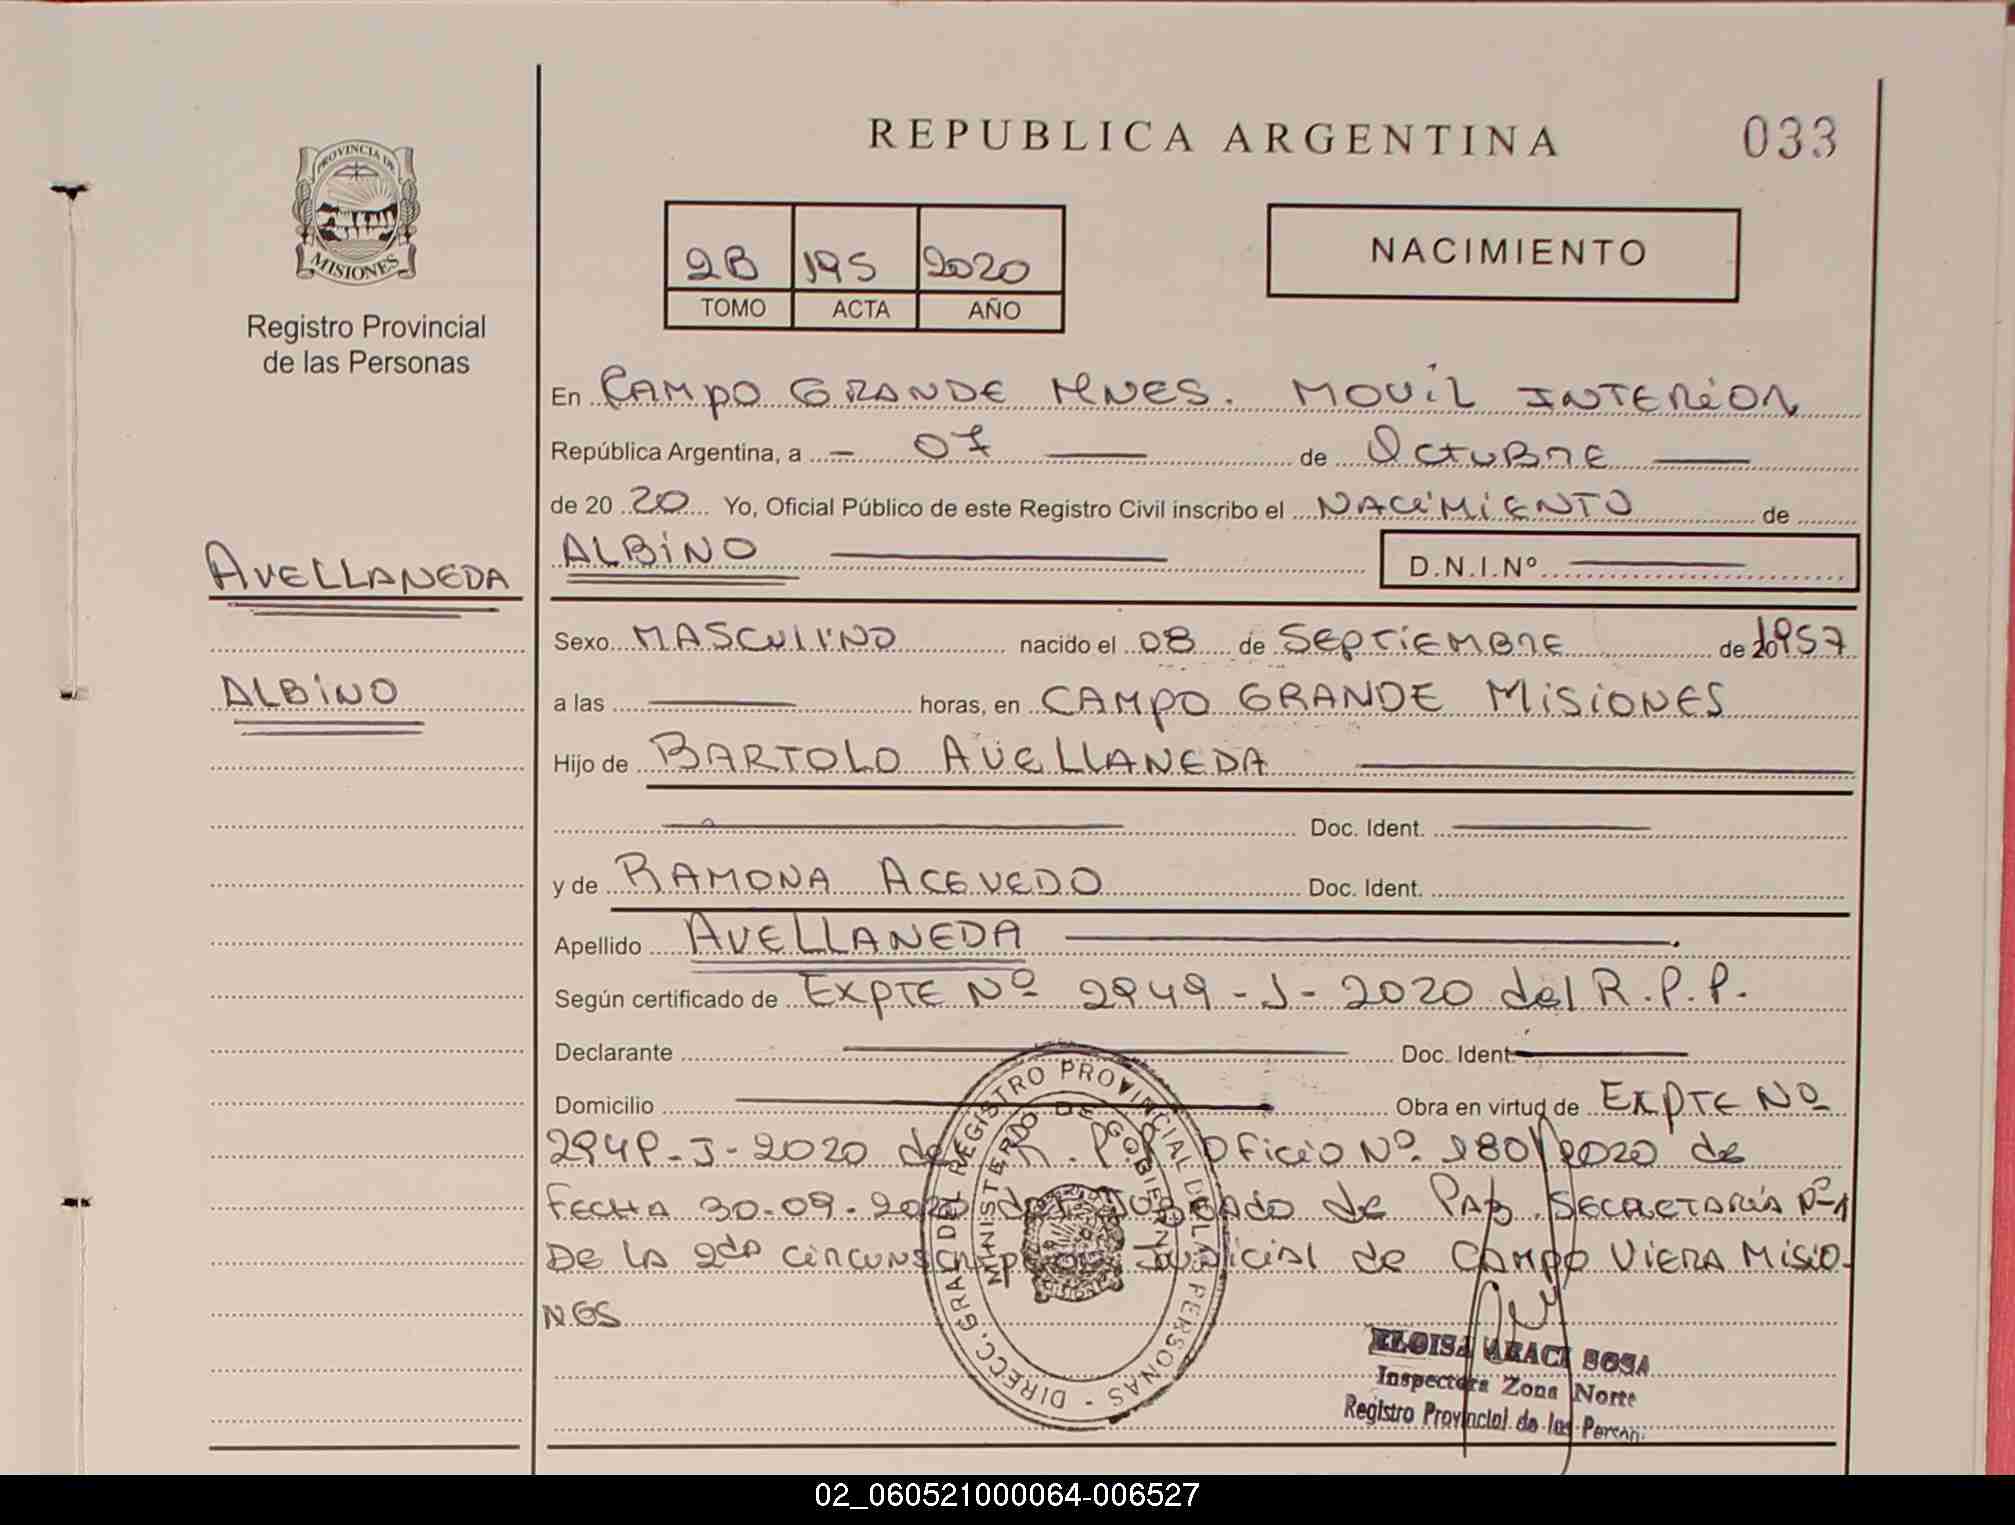 REPUBLICA ARGENTINA
033
PROVINCIA DE
MISIONES
Registro Provincial
de las Personas
2B 195 2020
TOMO ACTA AÑO
NACIMIENTO
En CAMPO GRANDE MNES. MOVIL INTERIOR
República Argentina, a - 07 de OCTUBRE
de 20 20 Yo, Oficial Público de este Registro Civil inscribo el NACIMIENTO de
AVELLANEDA
ALBINO D.N.I.Nº
Sexo MASCULINO nacido el 08 de SEPTIEMBRE de 1957
ALBINO
a las horas, en CAMPO GRANDE MISIONES
Hijo de BARTOLO AVELLANEDA
Doc. Ident.
y de RAMONA ACEVEDO Doc. Ident.
Apellido AVELLANEDA
Según certificado de EXPTE Nº 2949-J-2020 del R.P.P.
Declarante Doc. Ident
Domicilio Obra en virtud de EXPTE Nº
2949-J-2020 del R.P.P. OFICIO Nº 180/2020 de
FECHA 30-09-2020 del JUZGADO de PAZ SECRETARÍA Nº1
DE LA 2da CIRCUNSCRIPCION JUDICIAL de CAMPO VIERA MISIO-
NES
DIRECC. GRAL DEL REGISTRO PROVINCIAL DE LAS PERSONAS -
MINISTERIO DE GOBIERNO
ELOISA ARACI SOSA
Inspectora Zona Norte
Registro Provincial de las Person.
02_060521000064-006527